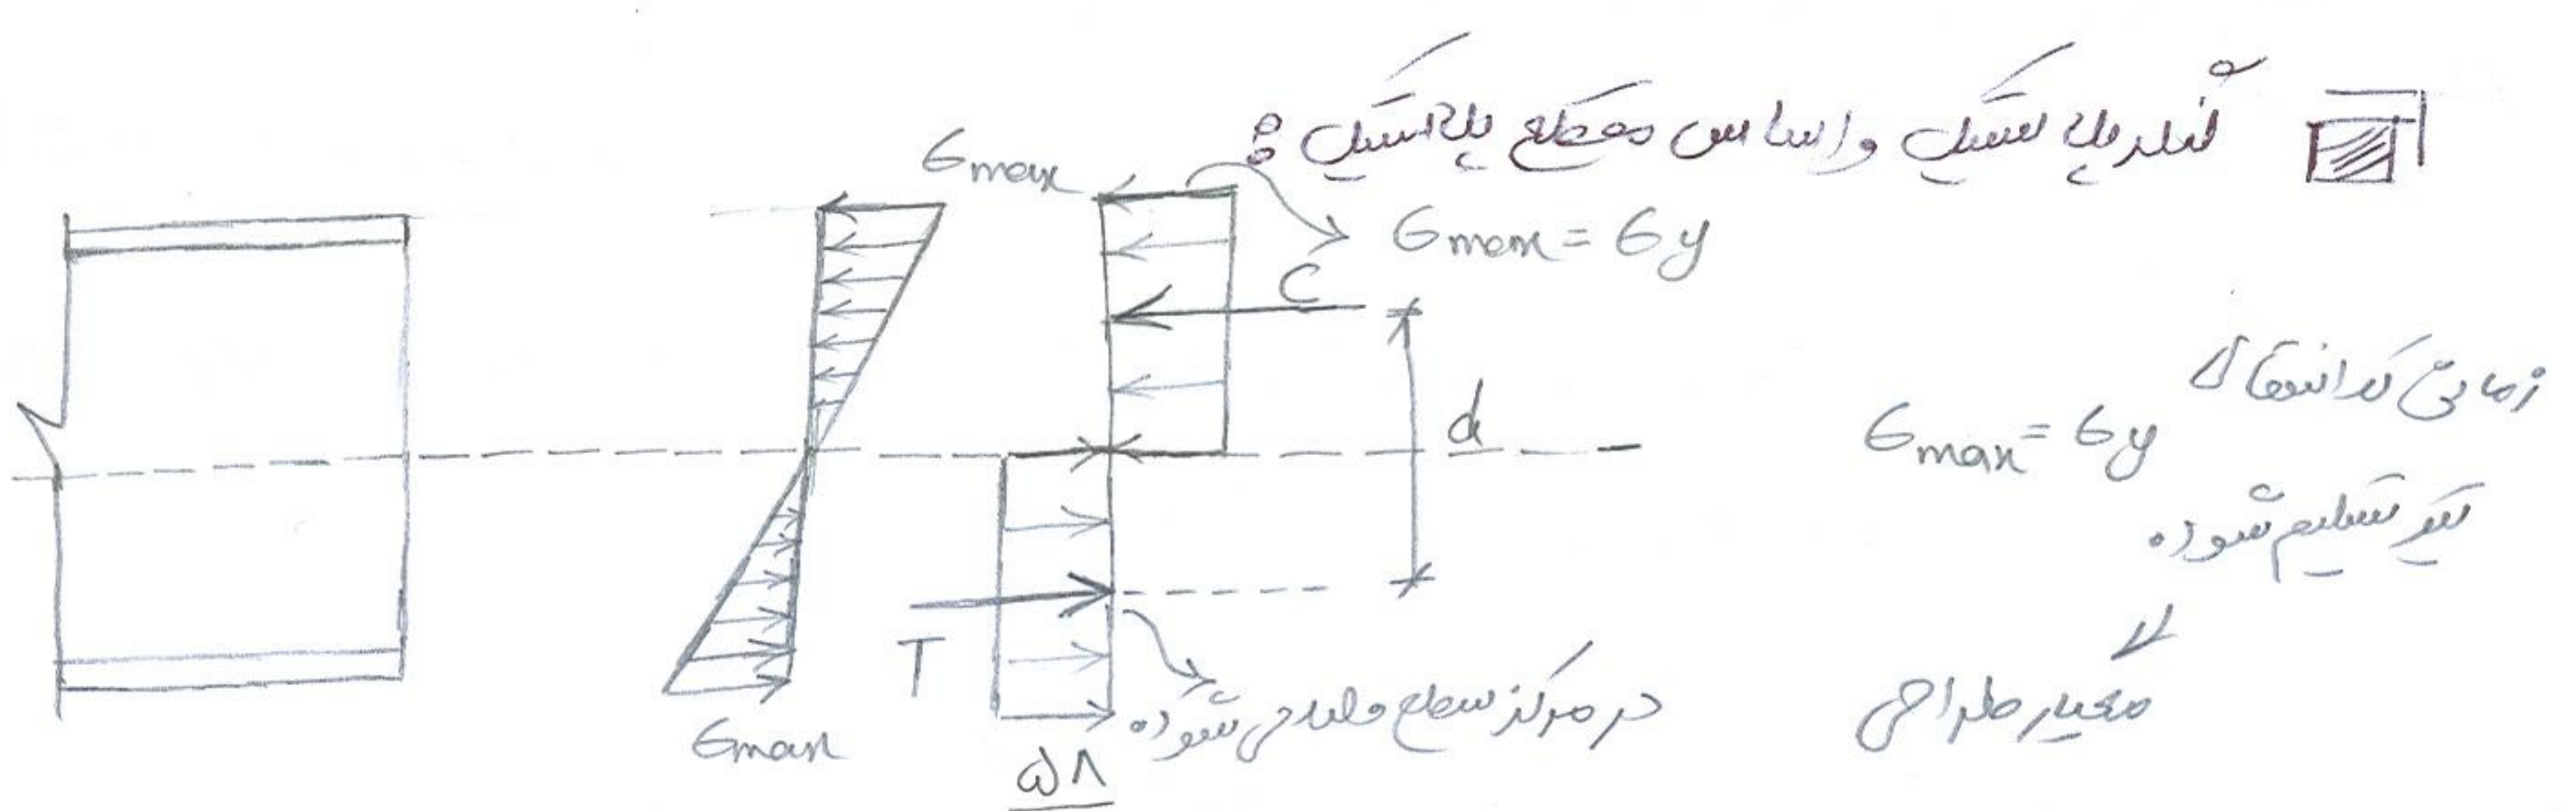 لنگر پلاستیک و اساس مقطع پلاستیک :
σmax
σmax = σy
C
زمانی که انتقال
σmax = σy
d
تیر تسلیم شود.
T
معیار طراحی
در مرکز سطح وارد می شود.
σmax
۵۸